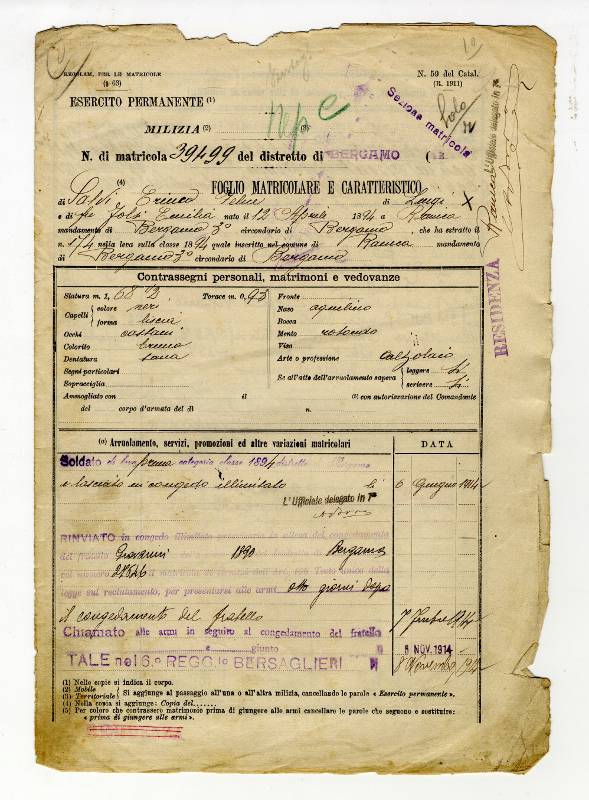 REGOLAM. PER LE MATRICOLE
(§ 63)
N. 59 del Catal.
(R. 1911)
ESERCITO PERMANENTE (1)
MILIZIA (2) (3)
Sezione matricola
N. di matricola 39499 del distretto di BERGAMO
(4) FOGLIO MATRICOLARE E CARATTERISTICO
di Salvi Enrico Felice di Luigi
e di fu Emilia nato il 12 Aprile 1894 a Ranica
mandamento di Bergamo 3° circondario di Bergamo, che ha estratto il
n. 174 nella leva sulla classe 1894 quale inscritto nel comune di Ranica mandamento
di Bergamo 3° circondario di Bergamo
RESIDENZA
Contrassegni personali, matrimoni e vedovanze
Statura m. 1, 68 Torace m. 0,
Capelli colore neri
forma lisci
Occhi castani
Colorito bruno
Dentatura sana
Segni particolari
Sopracciglia
Fronte
Naso aquilino
Bocca
Mento rotondo
Viso
Arte o professione calzolaio
Se all'atto dell'arruolamento sapeva leggere si
scrivere si
Ammogliato con il (5) con autorizzazione del Comandante
del corpo d'armata del dì n.
(a) Arruolamento, servizi, promozioni ed altre variazioni matricolari
DATA
Soldato di leva prima categoria classe 1894 distretto Bergamo
e lasciato in congedo illimitato li 6 Giugno 1914
L'Ufficiale delegato in 1a
RINVIATO in congedo illimitato in attesa del congedamento
del fratello Giovanni 1890 Bergamo
col numero di matricola Testo unico della
legge sul reclutamento, per presentarsi alle armi otto giorni dopo
il congedamento del fratello 7 1914
Chiamato alle armi in seguito al congedamento del fratello
e giunto 5 NOV. 1914
TALE nel 6.° REGG.to BERSAGLIERI 8 Novembre 1914
(1) Nelle copie si indica il corpo.
(2) Mobile
(3) Territoriale Si aggiunge al passaggio all'una o all'altra milizia, cancellando le parole « Esercito permanente ».
(4) Nella copia si aggiunge: Copia del.......
(5) Per coloro che contrassero matrimonio prima di giungere alle armi cancellare le parole che seguono e sostituire:
« prima di giungere alle armi ».